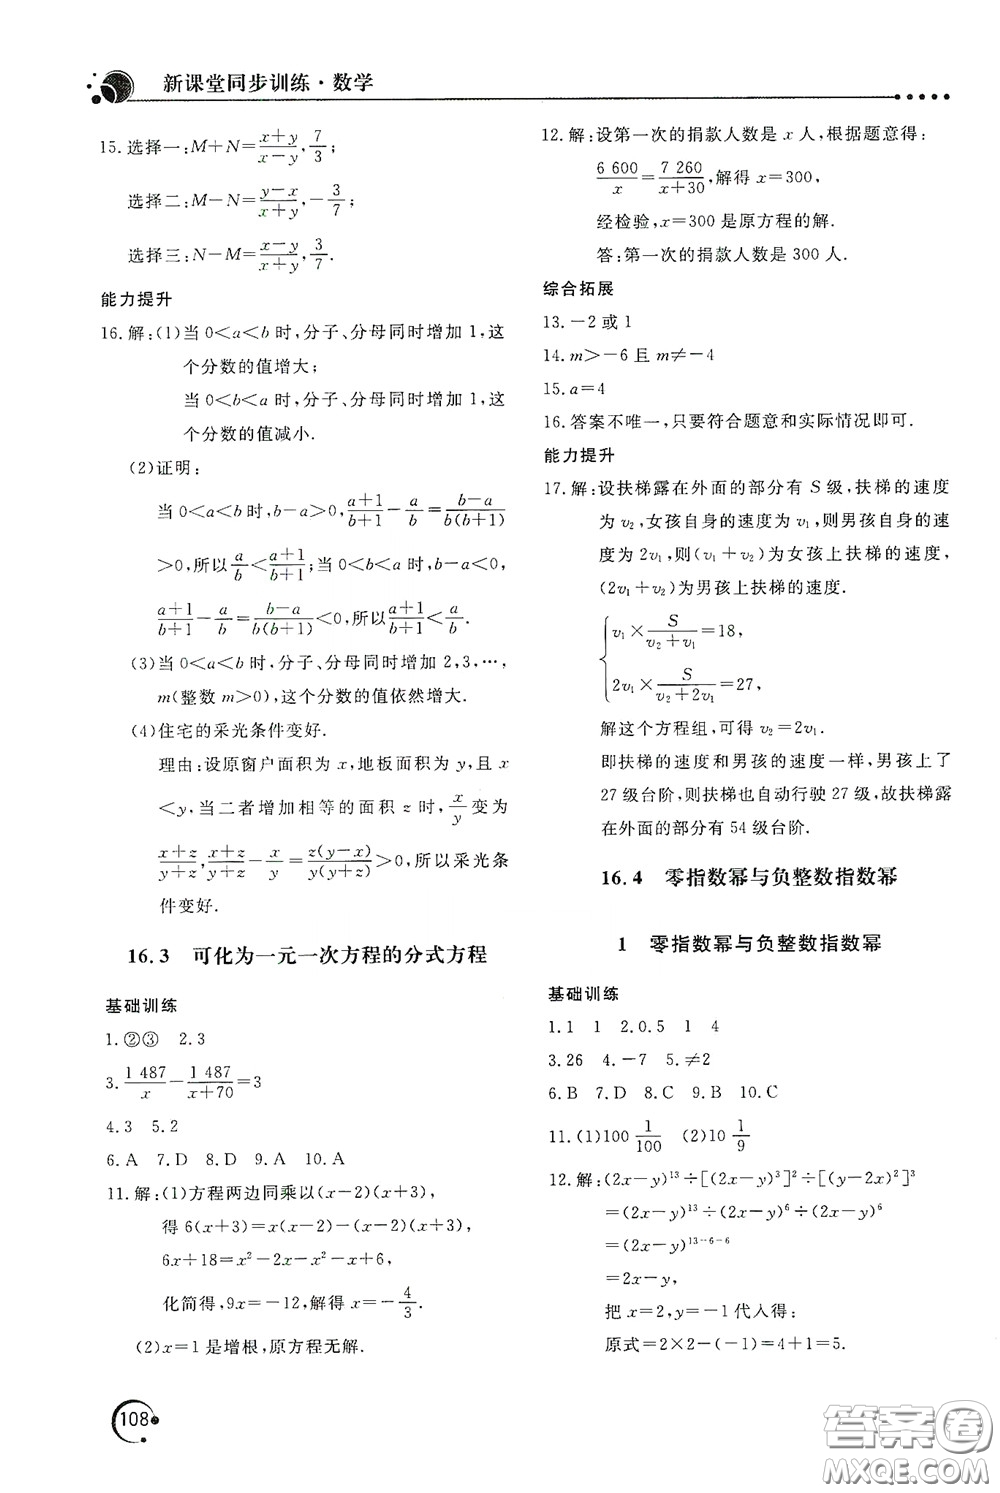 新课堂同步训练·数学
15.选择一:M+N=\frac{x+y}{x-y},\frac{7}{3};
选择二:M-N=\frac{y-x}{x+y},-\frac{3}{7};
选择三:N-M=\frac{x-y}{x+y},\frac{3}{7}.
能力提升
16.解:(1)当 0<a<b 时,分子、分母同时增加 1,这
个分数的值增大;
当 0<b<a 时,分子、分母同时增加 1,这
个分数的值减小.
(2)证明:
当 0<a<b 时,b-a>0,\frac{a+1}{b+1}-\frac{a}{b}=\frac{b-a}{b(b+1)}
>0,所以\frac{a}{b}<\frac{a+1}{b+1};当 0<b<a 时,b-a<0,
\frac{a+1}{b+1}-\frac{a}{b}=\frac{b-a}{b(b+1)}<0,所以\frac{a+1}{b+1}<\frac{a}{b}.
(3)当 0<a<b 时,分子、分母同时增加 2,3,…,
m(整数 m>0),这个分数的值依然增大.
(4)住宅的采光条件变好.
理由:设原窗户面积为 x,地板面积为 y,且 x
<y,当二者增加相等的面积 z 时,\frac{x}{y}变为
\frac{x+z}{y+z},\frac{x+z}{y+z}-\frac{x}{y}=\frac{z(y-x)}{y(y+z)}>0,所以采光条
件变好.
16.3 可化为一元一次方程的分式方程
基础训练
1.②③ 2.3
3.\frac{1 487}{x}-\frac{1 487}{x+70}=3
4.3 5.2
6.A 7.D 8.D 9.A 10.A
11.解:(1)方程两边同乘以(x-2)(x+3),
得 6(x+3)=x(x-2)-(x-2)(x+3),
6x+18=x²-2x-x²-x+6,
化简得,9x=-12,解得 x=-\frac{4}{3}.
(2)x=1 是增根,原方程无解.
12.解:设第一次的捐款人数是 x 人,根据题意得:
\frac{6 600}{x}=\frac{7 260}{x+30},解得 x=300,
经检验,x=300 是原方程的解.
答:第一次的捐款人数是 300 人.
综合拓展
13.-2 或 1
14.m>-6 且 m≠-4
15.a=4
16.答案不唯一,只要符合题意和实际情况即可.
能力提升
17.解:设扶梯露在外面的部分有 S 级,扶梯的速度
为 v₂,女孩自身的速度为 v₁,则男孩自身的速
度为 2v₁,则(v₁+v₂)为女孩上扶梯的速度,
(2v₁+v₂)为男孩上扶梯的速度.
v₁×\frac{S}{v₂+v₁}=18,
2v₁×\frac{S}{v₂+2v₁}=27,
解这个方程组,可得 v₂=2v₁.
即扶梯的速度和男孩的速度一样,男孩上了
27 级台阶,则扶梯也自动行驶 27 级,故扶梯露
在外面的部分有 54 级台阶.
16.4 零指数幂与负整数指数幂
1 零指数幂与负整数指数幂
基础训练
1.1 1 2.0.5 1 4
3.26 4.-7 5.≠2
6.B 7.D 8.C 9.B 10.C
11.(1)100 \frac{1}{100} (2)10 \frac{1}{9}
12.解:(2x-y)¹³÷[(2x-y)³]²÷[(y-2x)²]³
=(2x-y)¹³÷(2x-y)⁶÷(2x-y)⁶
=(2x-y)¹³⁻⁶⁻⁶
=2x-y,
把 x=2,y=-1 代入得:
原式=2×2-(-1)=4+1=5.
108
答案卷
MXQE.COM